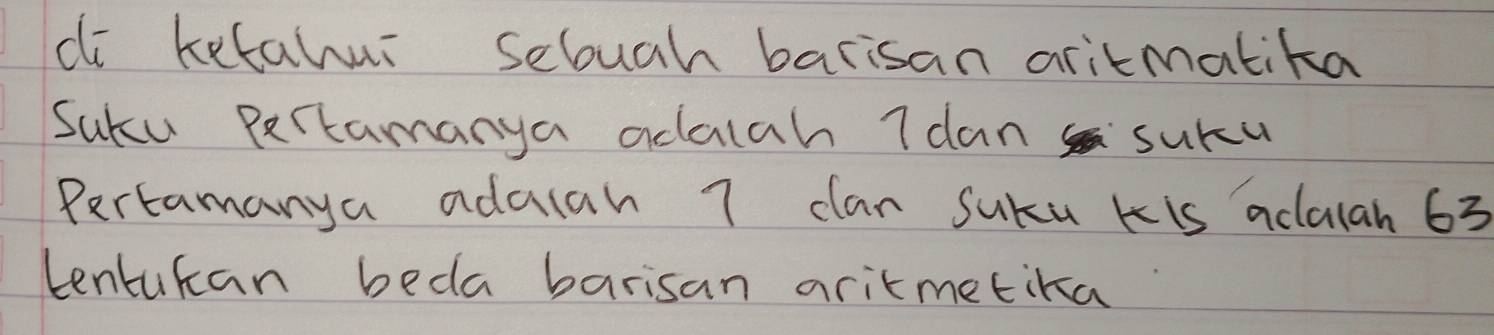 di ketahui sebuah barisan aritmatika
suku pertamanya adalah 7 dan suku
Pertamanya adalah 7 dan suku k 15 adalah 63
tentukan beda barisan aritmetika